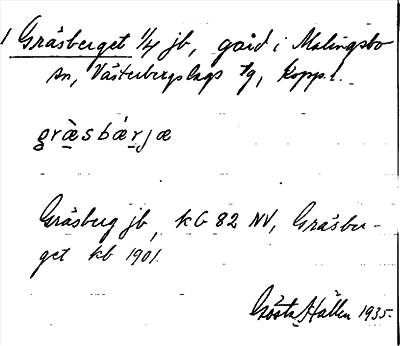 1 Gräsberget 1/4 jb, gård i Malingsbo
sn, Västerbergslags fg, Kopp. l.
græ̀sbæ̀rjæ
Gräsberg jb, kG 82 NV, Gräsber-
get kb 1901.
Gösta Hallen 1935.